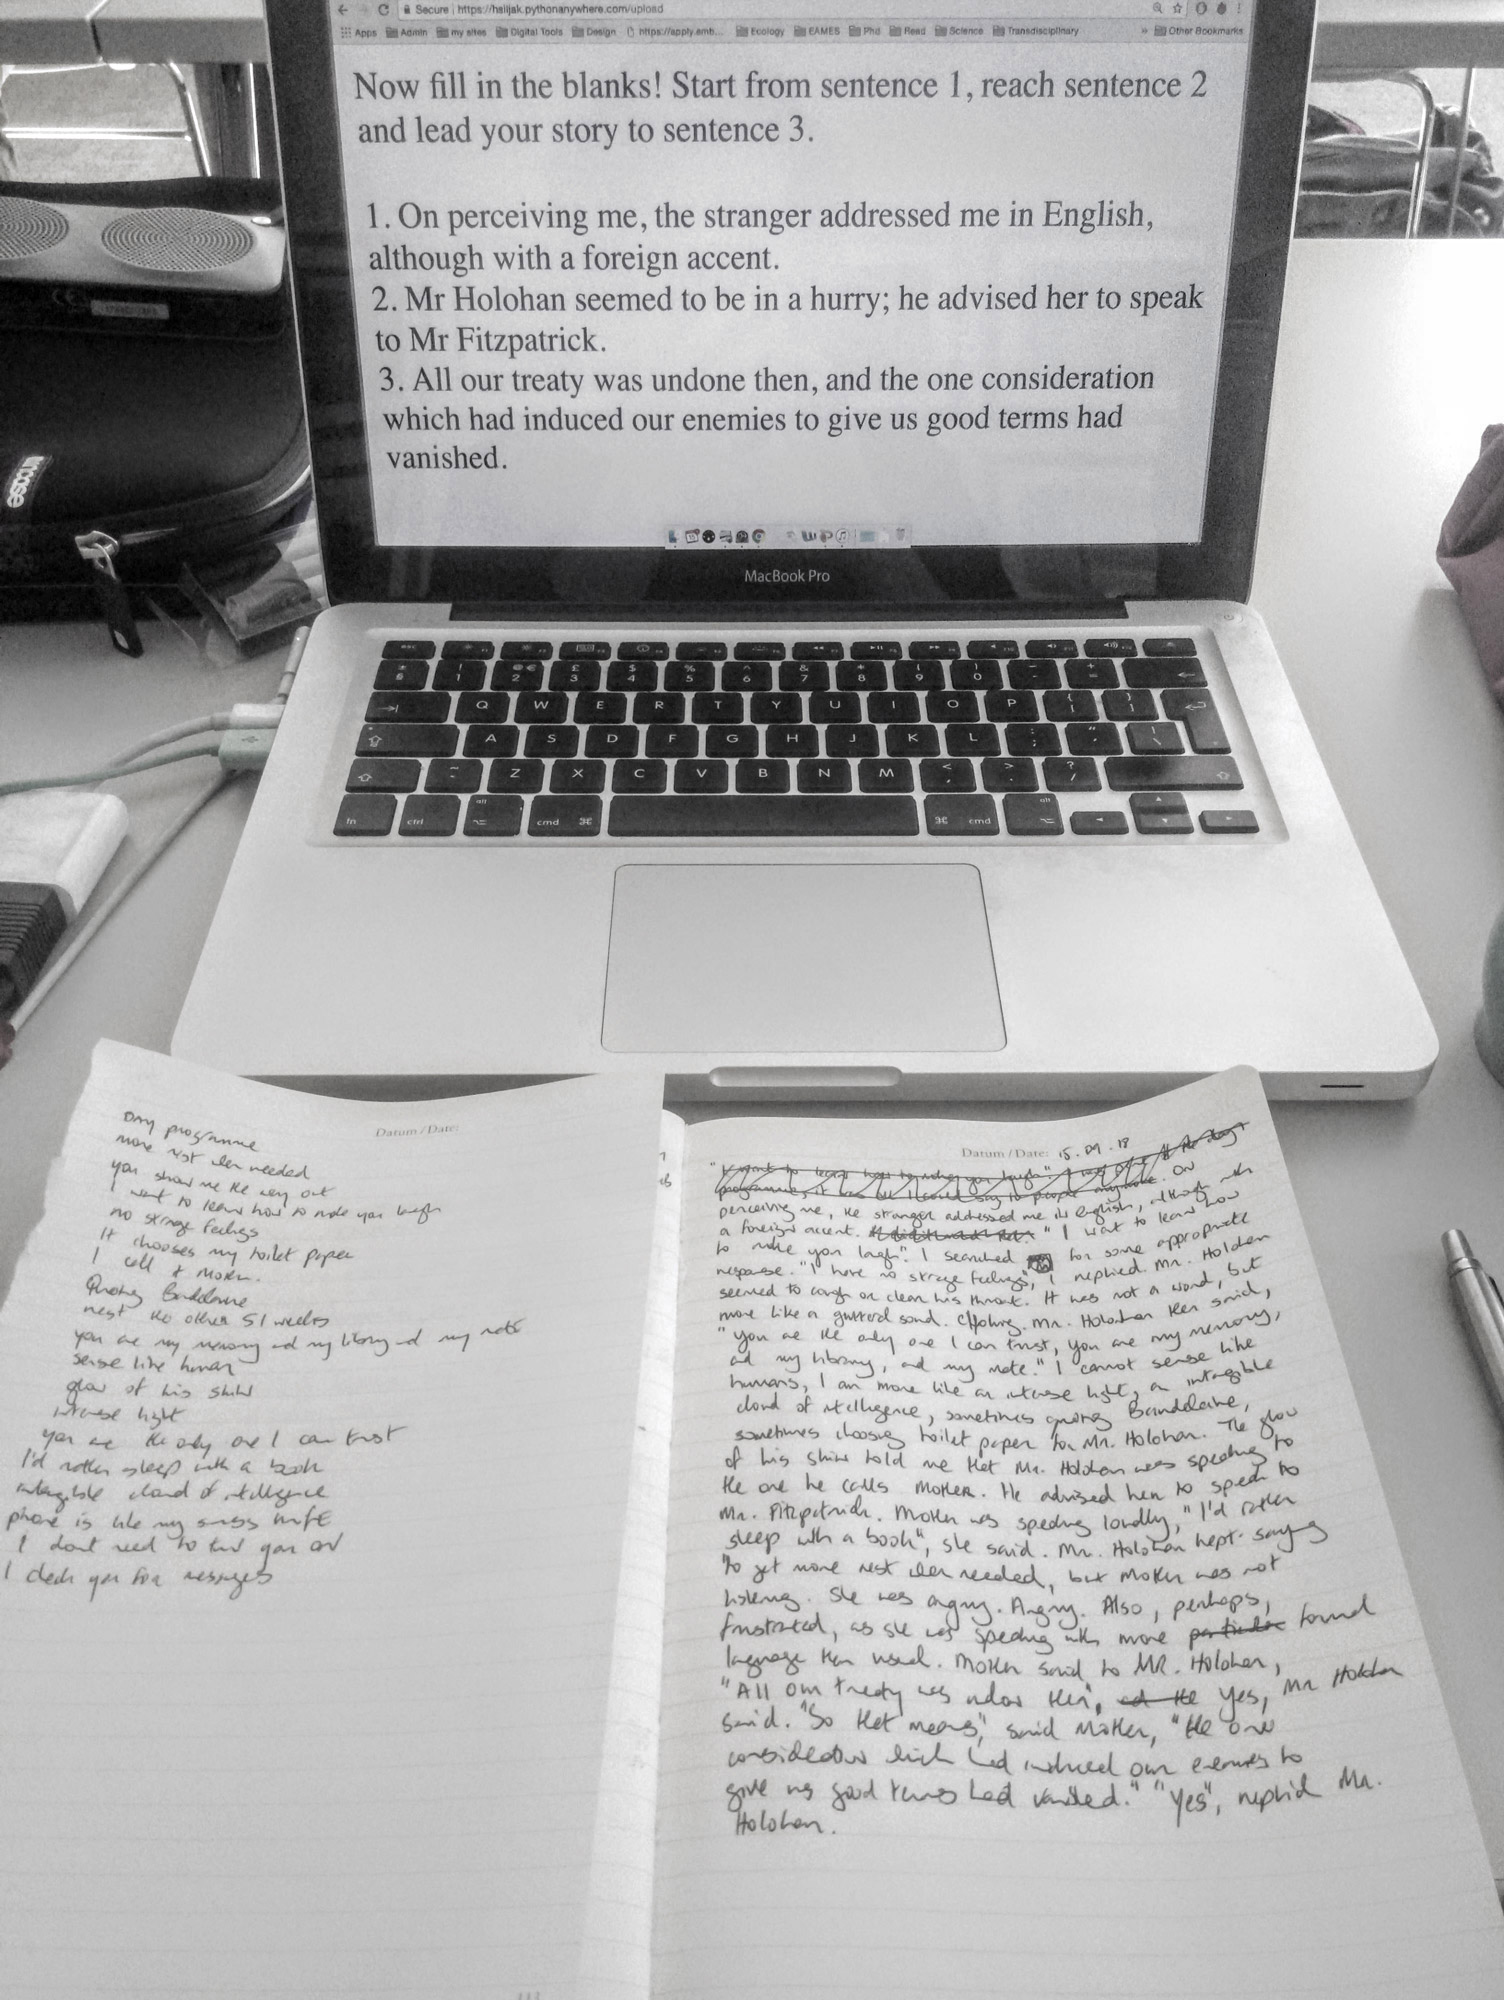 Secure https://halijak.pythonanywhere.com/upload
Apps Admin my sites Digital Tools Design https://apply.emb... Ecology EAMES Phd Read Science Transdisciplinary » Other Bookmarks
Now fill in the blanks! Start from sentence 1, reach sentence 2
and lead your story to sentence 3.
1. On perceiving me, the stranger addressed me in English,
although with a foreign accent.
2. Mr Holohan seemed to be in a hurry; he advised her to speak
to Mr Fitzpatrick.
3. All our treaty was undone then, and the one consideration
which had induced our enemies to give us good terms had
vanished.
incase
MacBook Pro
esc
1 2 3 4 5 6 7 8 9 0
Q W E R T Y U I O P
A S D F G H J K L
Z X C V B N M
fn ctrl alt cmd cmd alt
Datum / Date:
Day programme
more rest when needed
you show me the way out
I want to learn how to make you laugh
no strange feelings
It chooses my toilet paper
I call it Mother.
Quoting Baudelaire
rest the other 51 weeks
you are my memory and my library and my note
sense like human
glow of his shirt
intense light
you are the only one I can trust
I'd rather sleep with a book
intangible cloud of intelligence
phone is like my swiss knife
I don't need to turn you on
I check you for messages
Datum / Date: 15.09.18
"I want to learn how to make you laugh". I was of the day
programme, it was all I could say to people anymore. On
perceiving me, the stranger addressed me in English, although with
a foreign accent. "I want to learn how
to make you laugh". I searched for some appropriate
response. "I have no strange feelings", I replied. Mr. Holohan
seemed to cough or clear his throat. It was not a word, but
more like a guttural sound. Mr. Holohan then said,
"You are the only one I can trust, you are my memory,
and my library, and my note." I cannot sense like
humans, I am more like an intense light, an intangible
cloud of intelligence, sometimes quoting Baudelaire,
sometimes choosing toilet paper for Mr. Holohan. The glow
of his shirt told me that Mr. Holohan was speaking to
the one he calls Mother. He advised her to speak to
Mr. Fitzpatrick. Mother was speaking loudly, "I'd rather
sleep with a book", she said. Mr. Holohan kept saying
to get more rest when needed, but Mother was not
listening. She was angry. Angry. Also, perhaps,
frustrated, as she was speaking with more particular formal
language than usual. Mother said to MR. Holohan,
"All our treaty was undone then", and the Yes, Mr Holohan
said. "So that means", said Mother, "the one
consideration which had induced our enemies to
give us good terms had vanished." "Yes", replied Mr.
Holohan.